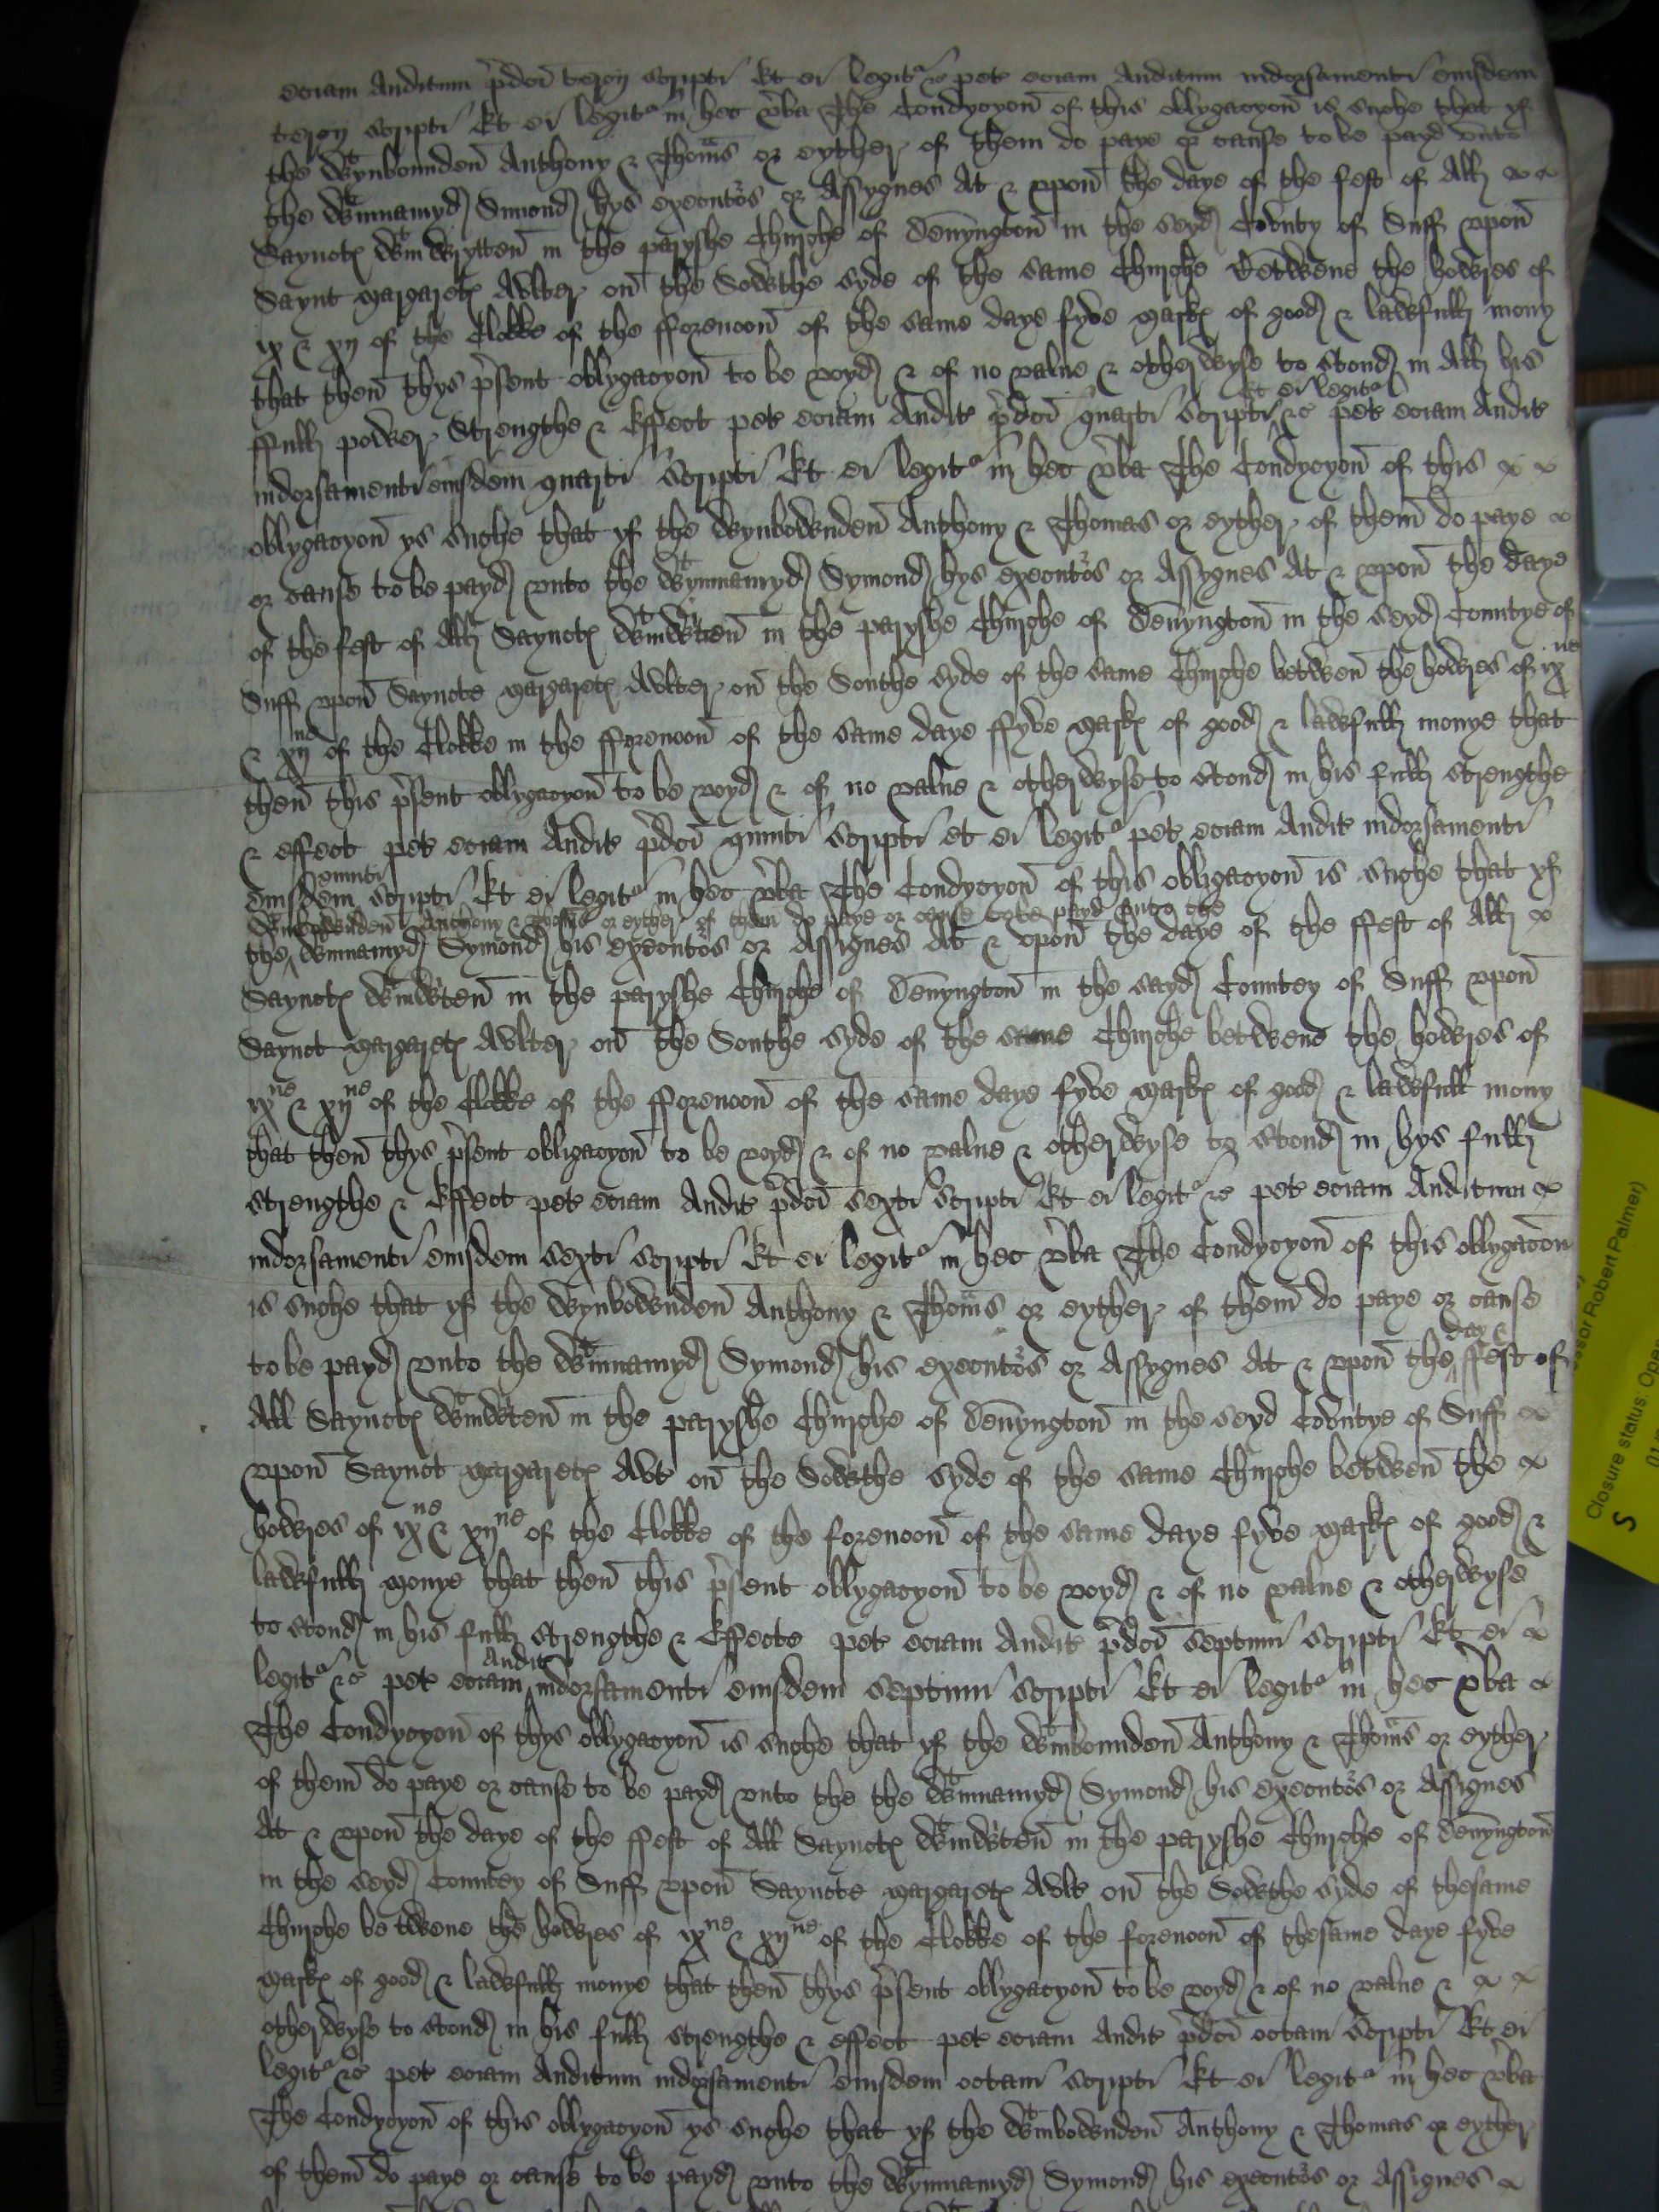 eciam Auditum p'dci tercij scripti Et ei legit^r &c pet eciam Auditum indorsamenti eiusdem
tercij scripti Et ei legit^r in hec v'ba The Condycyon of this oblygacyon is suche that yf
the Wynbounden Anthony & Thom's or eyther of them do paye or cause to be payd unto
the w^tinnamyd Simond hys executo^rs or Assygnes At & upon the daye of the fest of All
Saynct℮ w^tin wrytten in the paryshe Churche of Denyngton in the seyd Cownty of Suff upon
Saynt Margaret℮ Aulter on the Sowthe syde of the same Churche Betwene the howres of
ix & xij of the Clokke of the fforenoon of the same daye fyve mark℮ of good & lawfull mony
that then thys p'sent oblygacyon to be voyd & of no value & otherwyse to stond in All his
ffull power Strengthe & Effect pet eciam Audit^r p'dci quarti scripti Et ei legit^r &c pet eciam Audit^r
indorsamenti eiusdem quarti scripti Et ei legit^r in hec v'ba The Condycyon of this
oblygacyon ys suche that yf the wynbowenden Anthony & Thomas or eyther of them do paye
or cause to be payd unto the w^tynnamyd Symond hys executo^rs or Assygnes At & upon the daye
of the fest of All Saynct℮ w^tinw^rten in the paryshe Churche of Denyngton in the seyd Countye of
Suff upon Sayncte Margaret℮ Aulter on the Southe syde of the same Churche betwen the howres of ix^ne
& xij^ne of the Clokke in the fforenoon of the same daye ffyve mark℮ of good & lawfull monye that
then this p'sent oblygacyon to be voyd & of no value & otherwyse to stond in his full strengthe
& effect pet eciam Audit^r p'dci quinti scripti et ei legit^r pet eciam Audit^r indorsamenti
eiusdem quinti scripti Et ei legit^r in hec v'ba The Condycyon of this obligacyon is suche that yf
w^tinbowenden Anthony & Thom's or eyther of them do paye or cause to be payd unto the
the w^tinnamyd Symond his executo^rs or Assignes At & upon the daye of the ffest of All
Saynct℮ w^tinw^rten in the paryshe Churche of Denyngton in the sayd Countey of Suff upon
Saynct Margaret℮ Aulter on the Southe syde of the same Churche betwene the howres of
ix^ne & xij^ne of the Clokke of the fforenoon of the same daye fyve mark℮ of good & lawfull mony
that then thys p'sent obligacyon to be voyd & of no value & otherwyse to stond in hys full
strengthe & Effect pet eciam Audit^r p'dci sexti scripti Et ei legit^r &c pet eciam Auditum
indorsamenti eiusdem sexti scripti Et ei legit^r in hec v'ba The Condycyon of this oblygacon
is suche that yf the wynbowenden Anthony & Thom's or eyther of them do paye or cause
to be payd unto the w^tinnamyd Symond his executo^rs or Assygnes At & upon the day & ffest of
All Saynct℮ w^tinw^rten in the paryshe Churche of Denyngton in the seyd Cowntye of Suff
upon Saynct Margaret℮ Ault^r on the Sowthe syde of the same Churche betwen the
howres of ix^ne & xij^ne of the Clokke of the forenoon of the same daye fyve mark℮ of good &
lawfull monye that then this p'sent oblygacyon to be voyd & of no value & otherwyse
to stond in his full strengthe & Effecte pet eciam Audit^r p'dci septimi scripti Et ei
legit^r &c pet eciam Audit^r indorsamenti eiusdem septimi scripti Et ei legit^r in hec v'ba
The Condycyon of thys oblygacyon is suche that yf the w^tinbounden Anthony & Thom's or eyther
of them do paye or cause to be payd unto the the w^tinnamyd Symond his executo^rs or Assignes
At & upon the daye of the ffest of All Saynct℮ w^tinw^rten in the paryshe Churche of Denyngton
in the seyd Countey of Suff upon Sayncte Margaret℮ Ault^r on the Sowthe syde of thesame
Churche be twene the howres of ix^ne & xij^ne of the Clokke of the forenoon of thesame daye fyve
mark℮ of good & lawfull monye that then thys p'sent oblygacyon to be voyd & of no value &
otherwyse to stond in his full strengthe & effect pet eciam Audit^r p'dci octavi scripti Et ei
legit^r &c pet eciam Auditum indorsamenti eiusdem octavi scripti Et ei legit^r in hec v'ba
The Condycyon of this oblygacyon ys suche that yf the w^tinbowenden Anthony & Thomas or eyther
of them do paye or cause to be payd unto the w^tynnamyd Symond his executo^rs or Assignes
essor Robert Palmer)
Closure status: Open
S